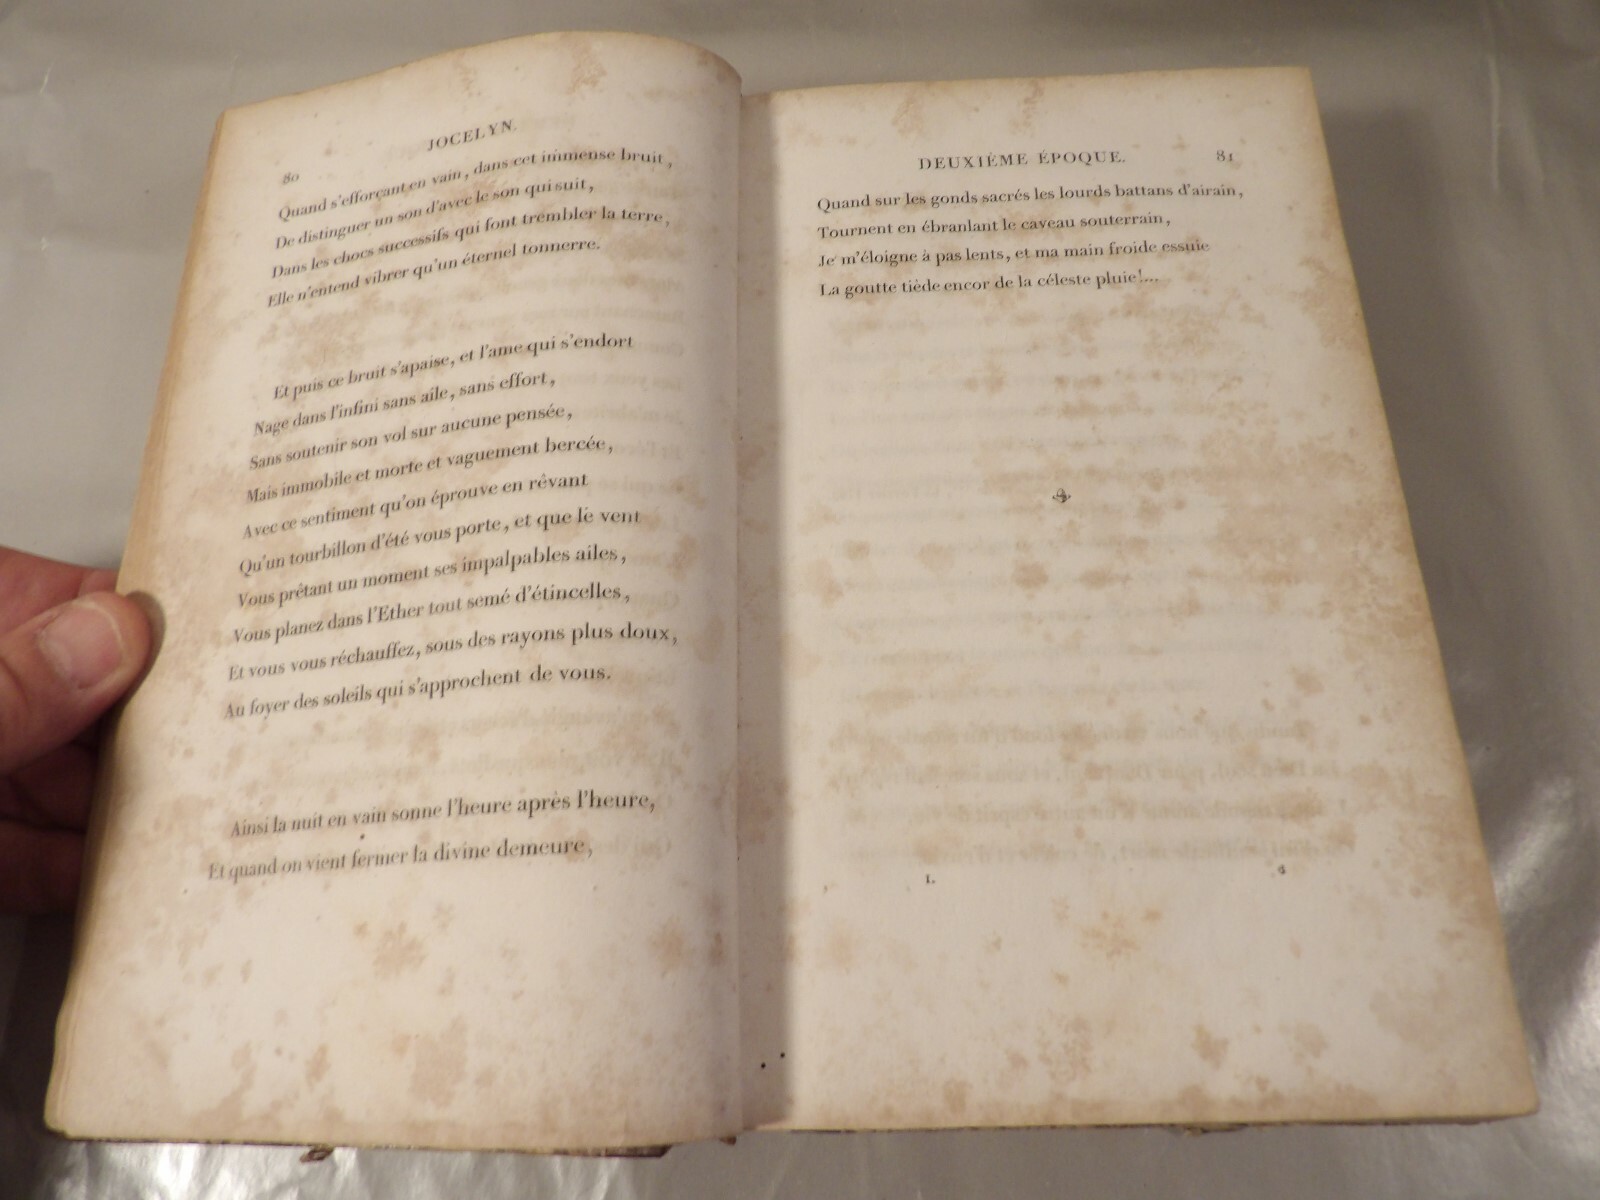 80
JOCELYN.
Quand s'efforçant en vain, dans cet immense bruit,
De distinguer un son d'avec le son qui suit,
Dans les chocs successifs qui font trembler la terre,
Elle n'entend vibrer qu'un éternel tonnerre.
Et puis ce bruit s'apaise, et l'ame qui s'endort
Nage dans l'infini sans aile, sans effort,
Sans soutenir son vol sur aucune pensée,
Mais immobile et morte et vaguement bercée,
Avec ce sentiment qu'on éprouve en rêvant
Qu'un tourbillon d'été vous porte, et que le vent
Vous prêtant un moment ses impalpables ailes,
Vous planez dans l'Ether tout semé d'étincelles,
Et vous vous réchauffez, sous des rayons plus doux,
Au foyer des soleils qui s'approchent de vous.
Ainsi la nuit en vain sonne l'heure après l'heure,
Et quand on vient fermer la divine demeure,
DEUXIÈME ÉPOQUE. 81
Quand sur les gonds sacrés les lourds battans d'airain,
Tournent en ébranlant le caveau souterrain,
Je m'éloigne à pas lents, et ma main froide essuie
La goutte tiède encor de la céleste pluie!...
I. 6